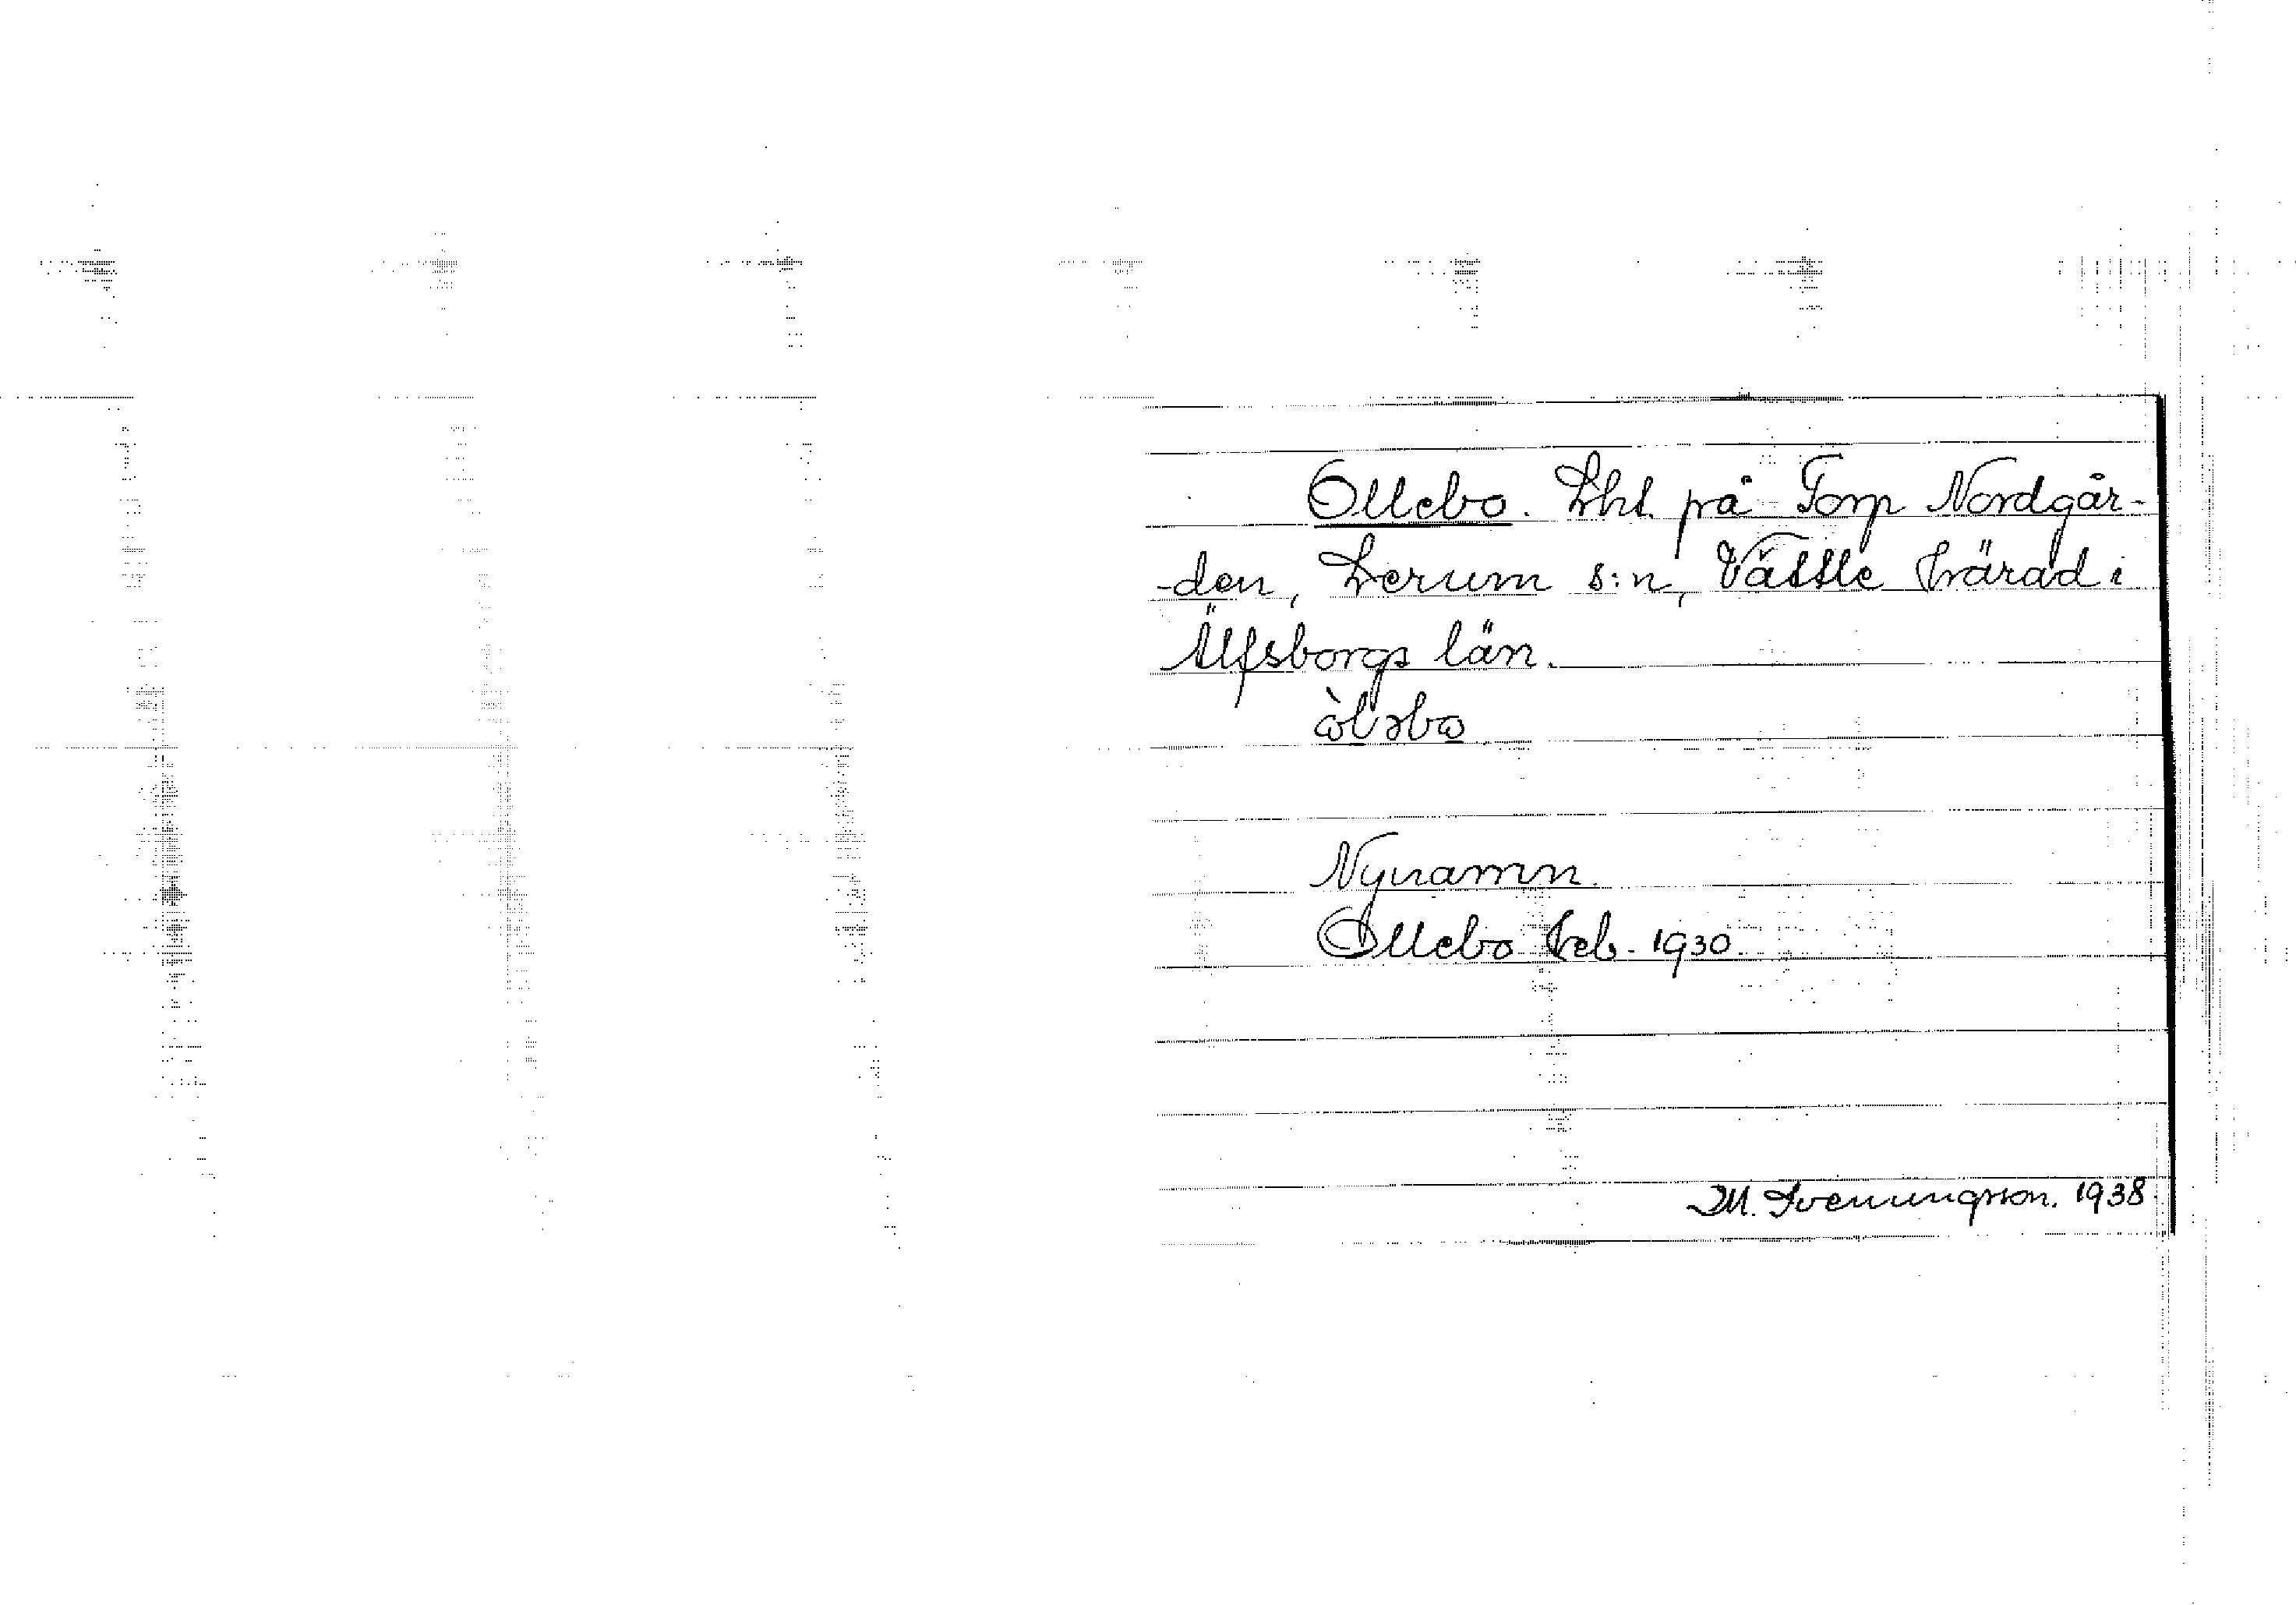 Ollebo. Lht. på Torp Nordgår-
-den, Lerum s:n, Vättle härad i
Älfsborgs län.
òlǝbo
Nynamn.
Ollebo Jeb. 1930.
M. Svenungsson. 1938.